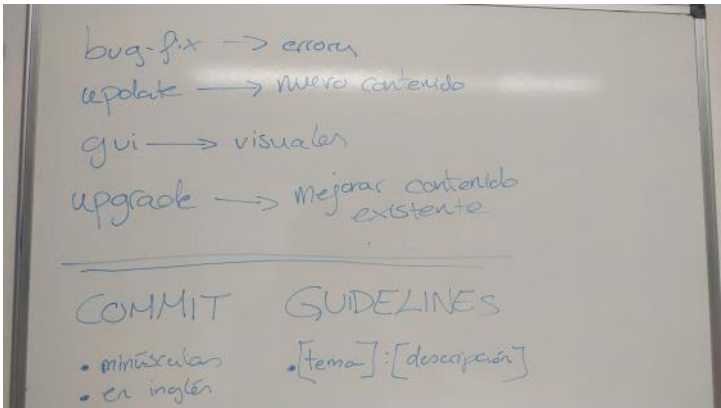 bug-fix -> errores
update -> nuevo contenido
gui -> visuales
upgrade -> mejorar contenido
existente
COMMIT GUIDELINES
• minúsculas
• en inglés
• [tema]:[descripción]